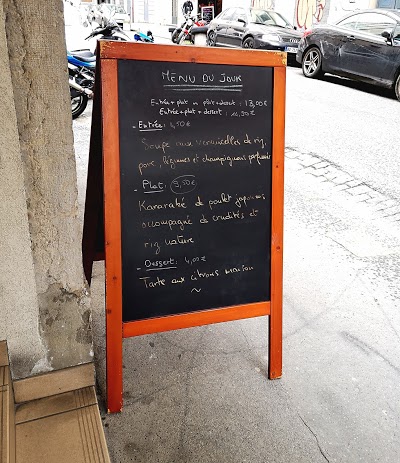 MENU DU JOUR
Entrée + plat ou plat + dessert : 13,00€
Entrée + plat + dessert :
- Entrée : 4,50€
Soupe aux vermicelles de riz,
porc, légumes et champignons parfumés
- Plat : 9,50€
Kararaké de poulet japonais
accompagné de crudités et
riz nature
- Dessert : 4,00€
Tarte aux citrons
~